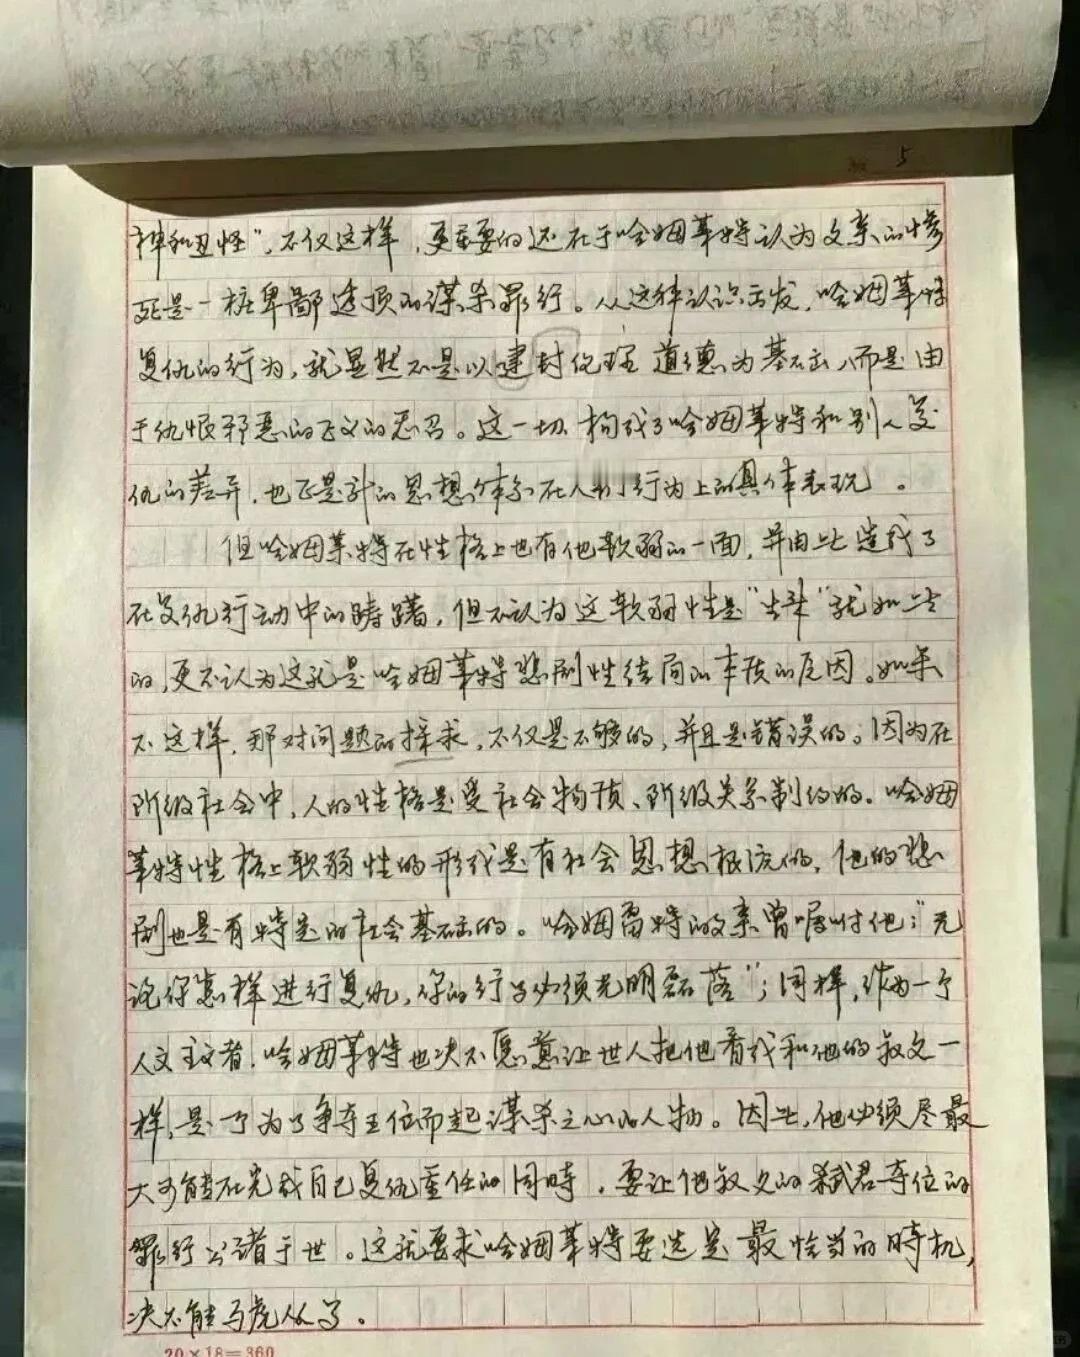 5
神和丑怪"，不仅这样，更重要的还在于哈姆莱特认为父亲的惨
死是一桩卑鄙透顶的谋杀罪行。从这种认识出发，哈姆莱特
复仇的行为，就显然不是以建封伦理道德为基础，而是由
于仇恨邪恶的正义的感召。这一切构成了哈姆莱特和别人复
仇的差异，也正是的思想体系在人行为上的具体表现。
但哈姆莱特在性格上也有他软弱的一面，并由此造成了
在复仇行动中的踌躇，但不认为这软弱性是"生来"就如此
的，更不认为这就是哈姆莱特悲剧性结局的本质的原因。如果
不这样，那对问题的探求，不仅是不够的，并且是错误的。因为在
阶级社会中，人的性格是受社会物质、阶级关系制约的。哈姆
莱特性格上软弱性的形成是有社会思想根源的，他的悲
剧也是有特定的社会基础的。哈姆雷特的父亲曾嘱咐他："无
论你怎样进行复仇，你的行为必须光明磊落"；同样，作为一个
人文主义者，哈姆莱特也决不愿意让世人把他看成和他的叔父一
样，是个为了争夺王位而起谋杀之心的人物。因此，他必须尽最
大可能在完成自己复仇重任的同时，要让他叔父的弑君夺位的
罪行公诸于世。这就要求哈姆莱特要选定最恰当的时机，
决不能马虎从事。
20×18=360